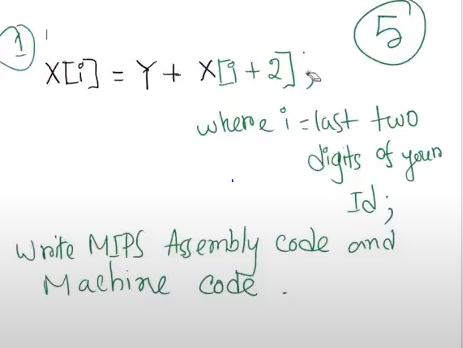 1
5
X[i] = Y + X[i + 2];
where i = last two
digits of your
Id;
Write MIPS Assembly code and
Machine code.